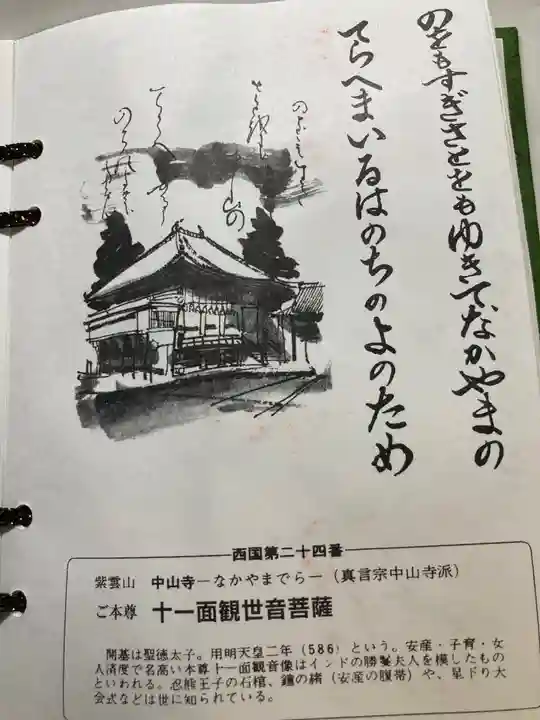 のをもすぎさとをもゆきてなかやまの
てらへまいるはのちのよのため
西国第二十四番
紫雲山 中山寺―なかやまでら―(真言宗中山寺派)
ご本尊 十一面観世音菩薩
開基は聖徳太子。用明天皇二年(586)という。安産・子育・女
人済度で名高い本尊十一面観音像はインドの勝鬘夫人を模したもの
といわれる。忍熊王子の石棺、鐘の緒(安産の腹帯)や、星下り大
会式などは世に知られている。